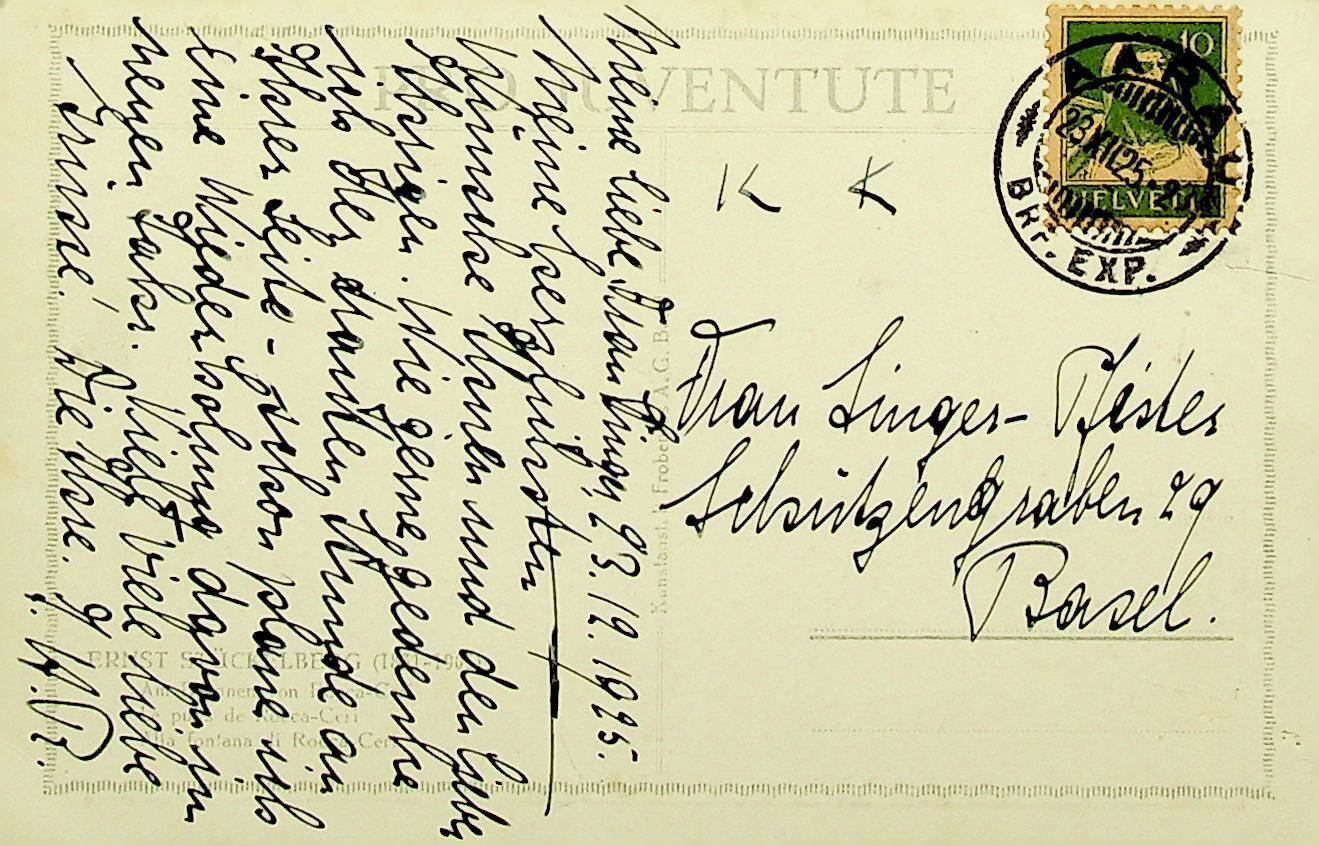 PRO JUVENTUTE
10
HELVETIA
AARAU
23.XII.25.
BRF. EXP.
K K
Frau Singer-Pfister
Schützengraben 29
Basel.
Meine liebe Frau Singer, 23.12.1925.
Meine herzlichsten
Wünsche Ihnen und den lieben
Ihrigen. Wie gerne gedenke
ich der trauten Stunde an
Ihrer Seite - Schon plane ich
eine Wiederholung davon im
neuen Jahr. Viele liebe
Grüsse! Die Ihre.
Kunstanst. Froben A.G. B
ERNST STÜCKELBERG (1831-190
Am Brunnen von Rocca-Ceri
Le puits de Rocca-Ceri
Alla fontana di Rocca-Ceri